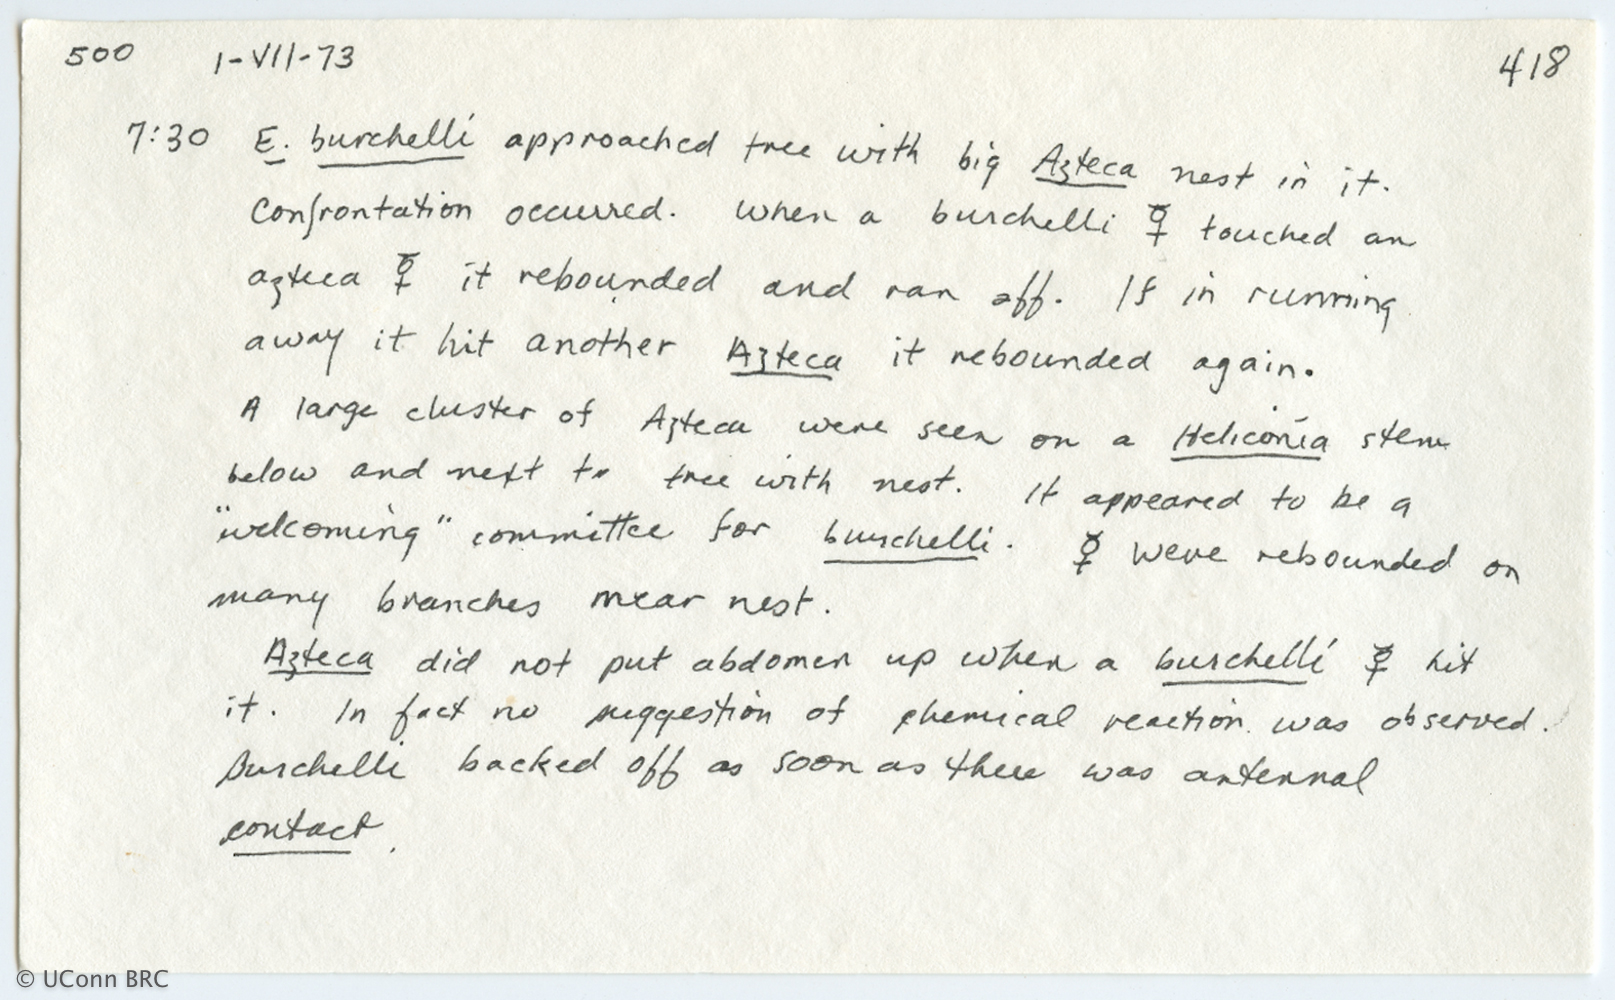 500 1-VII-73 418
7:30 E. burchelli approached tree with big Azteca nest in it.
Confrontation occurred. When a burchelli ☿ touched an
azteca ☿ it rebounded and ran off. If in running
away it hit another Azteca it rebounded again.
A large cluster of Azteca were seen on a Heliconia stem
below and next to tree with nest. It appeared to be a
"welcoming" committee for burchelli. ☿ were rebounded on
many branches near nest.
Azteca did not put abdomen up when a burchelli ☿ hit
it. In fact no suggestion of chemical reaction was observed.
Burchelli backed off as soon as there was antennal
contact.
© UConn BRC